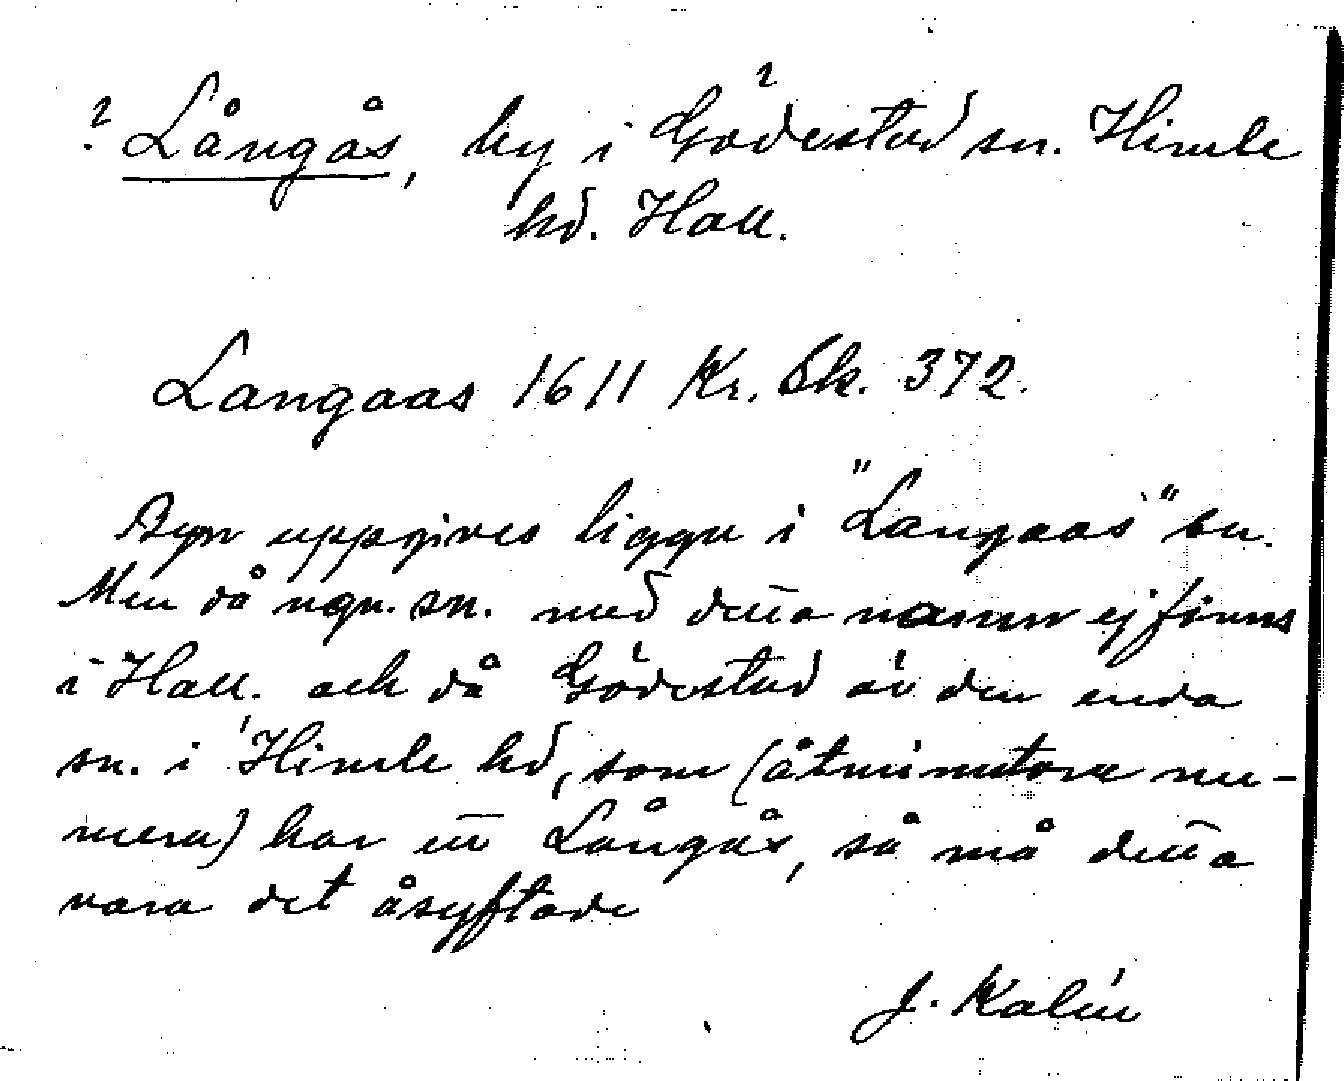 ? Långås, by i Gödestad ? sn. Himle
hd. Hall.
Langaas 1611 Kr. Sk. 372.
Byn uppgives ligga i "Langaas" sn.
Men då ngn. sn. med detta namn ej finns
i Hall. och då Gödestad är den enda
sn. i Himle hd, som (åtminstone nu-
mera) har ett Långås, så må detta
vara det åsyftade
J. Kalén